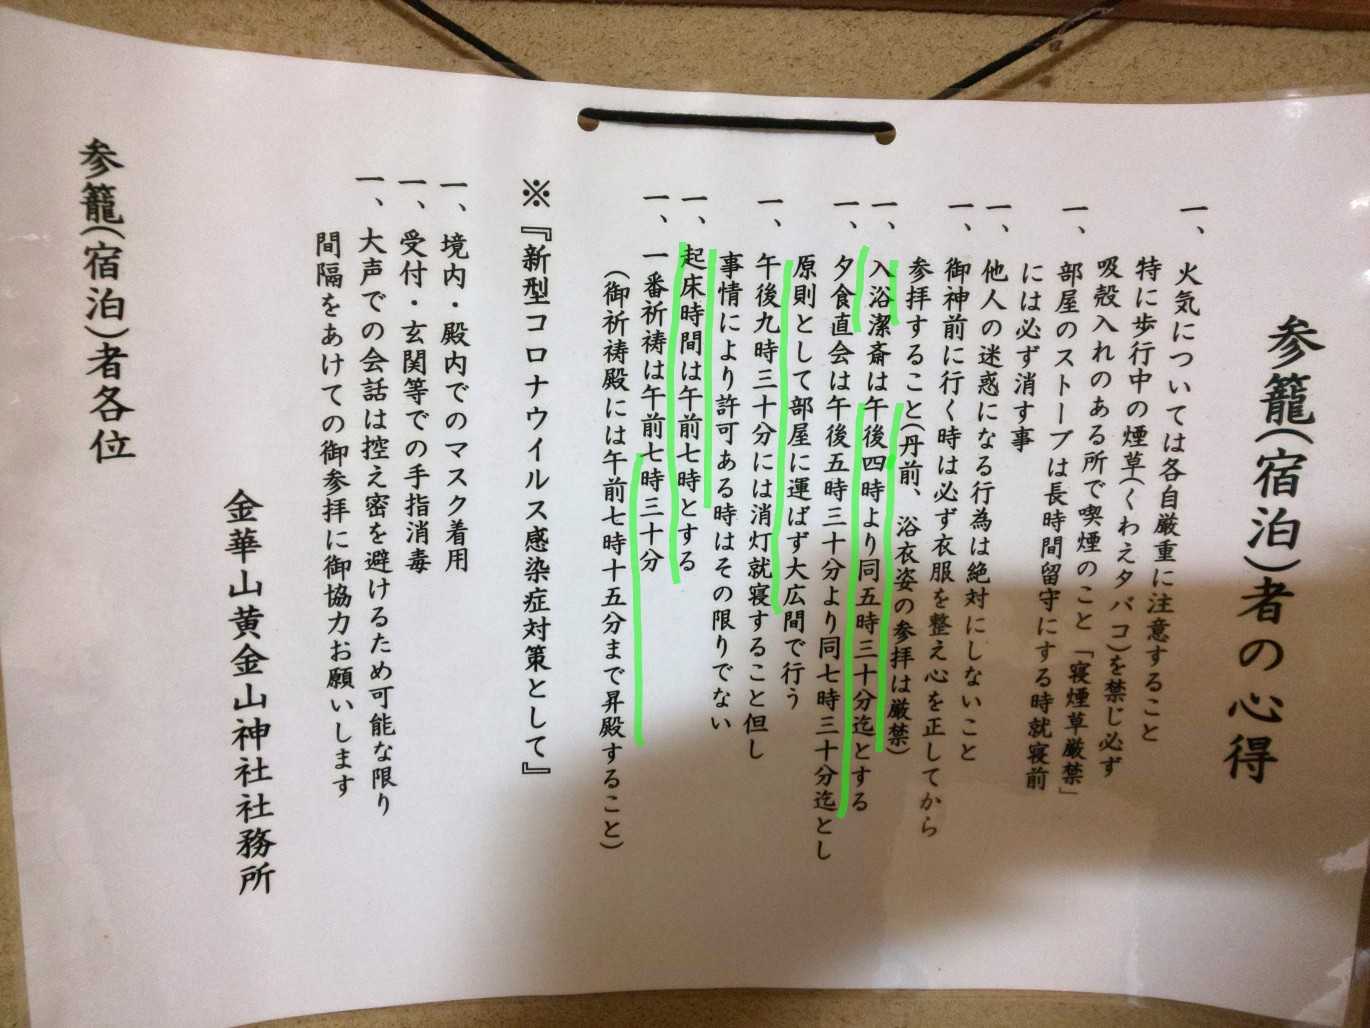 参籠(宿泊)者の心得
一、火気については各自厳重に注意すること
特に歩行中の煙草(くわえタバコ)を禁じ必ず
吸殻入れのある所で喫煙のこと「寝煙草厳禁」
一、部屋のストーブは長時間留守にする時就寝前
には必ず消す事
一、他人の迷惑になる行為は絶対にしないこと
一、御神前に行く時は必ず衣服を整え心を正してから
参拝すること(丹前、浴衣姿の参拝は厳禁)
一、入浴潔斎は午後四時より同五時三十分迄とする
一、夕食直会は午後五時三十分より同七時三十分迄とし
原則として部屋に運ばず大広間で行う
一、午後九時三十分には消灯就寝すること但し
事情により許可ある時はその限りでない
一、起床時間は午前七時とする
一、一番祈祷は午前七時三十分
(御祈祷殿には午前七時十五分まで昇殿すること)
※『新型コロナウイルス感染症対策として』
一、境内・殿内でのマスク着用
一、受付・玄関等での手指消毒
一、大声での会話は控え密を避けるため可能な限り
間隔をあけての御参拝に御協力お願いします
金華山黄金山神社社務所
参籠(宿泊)者各位